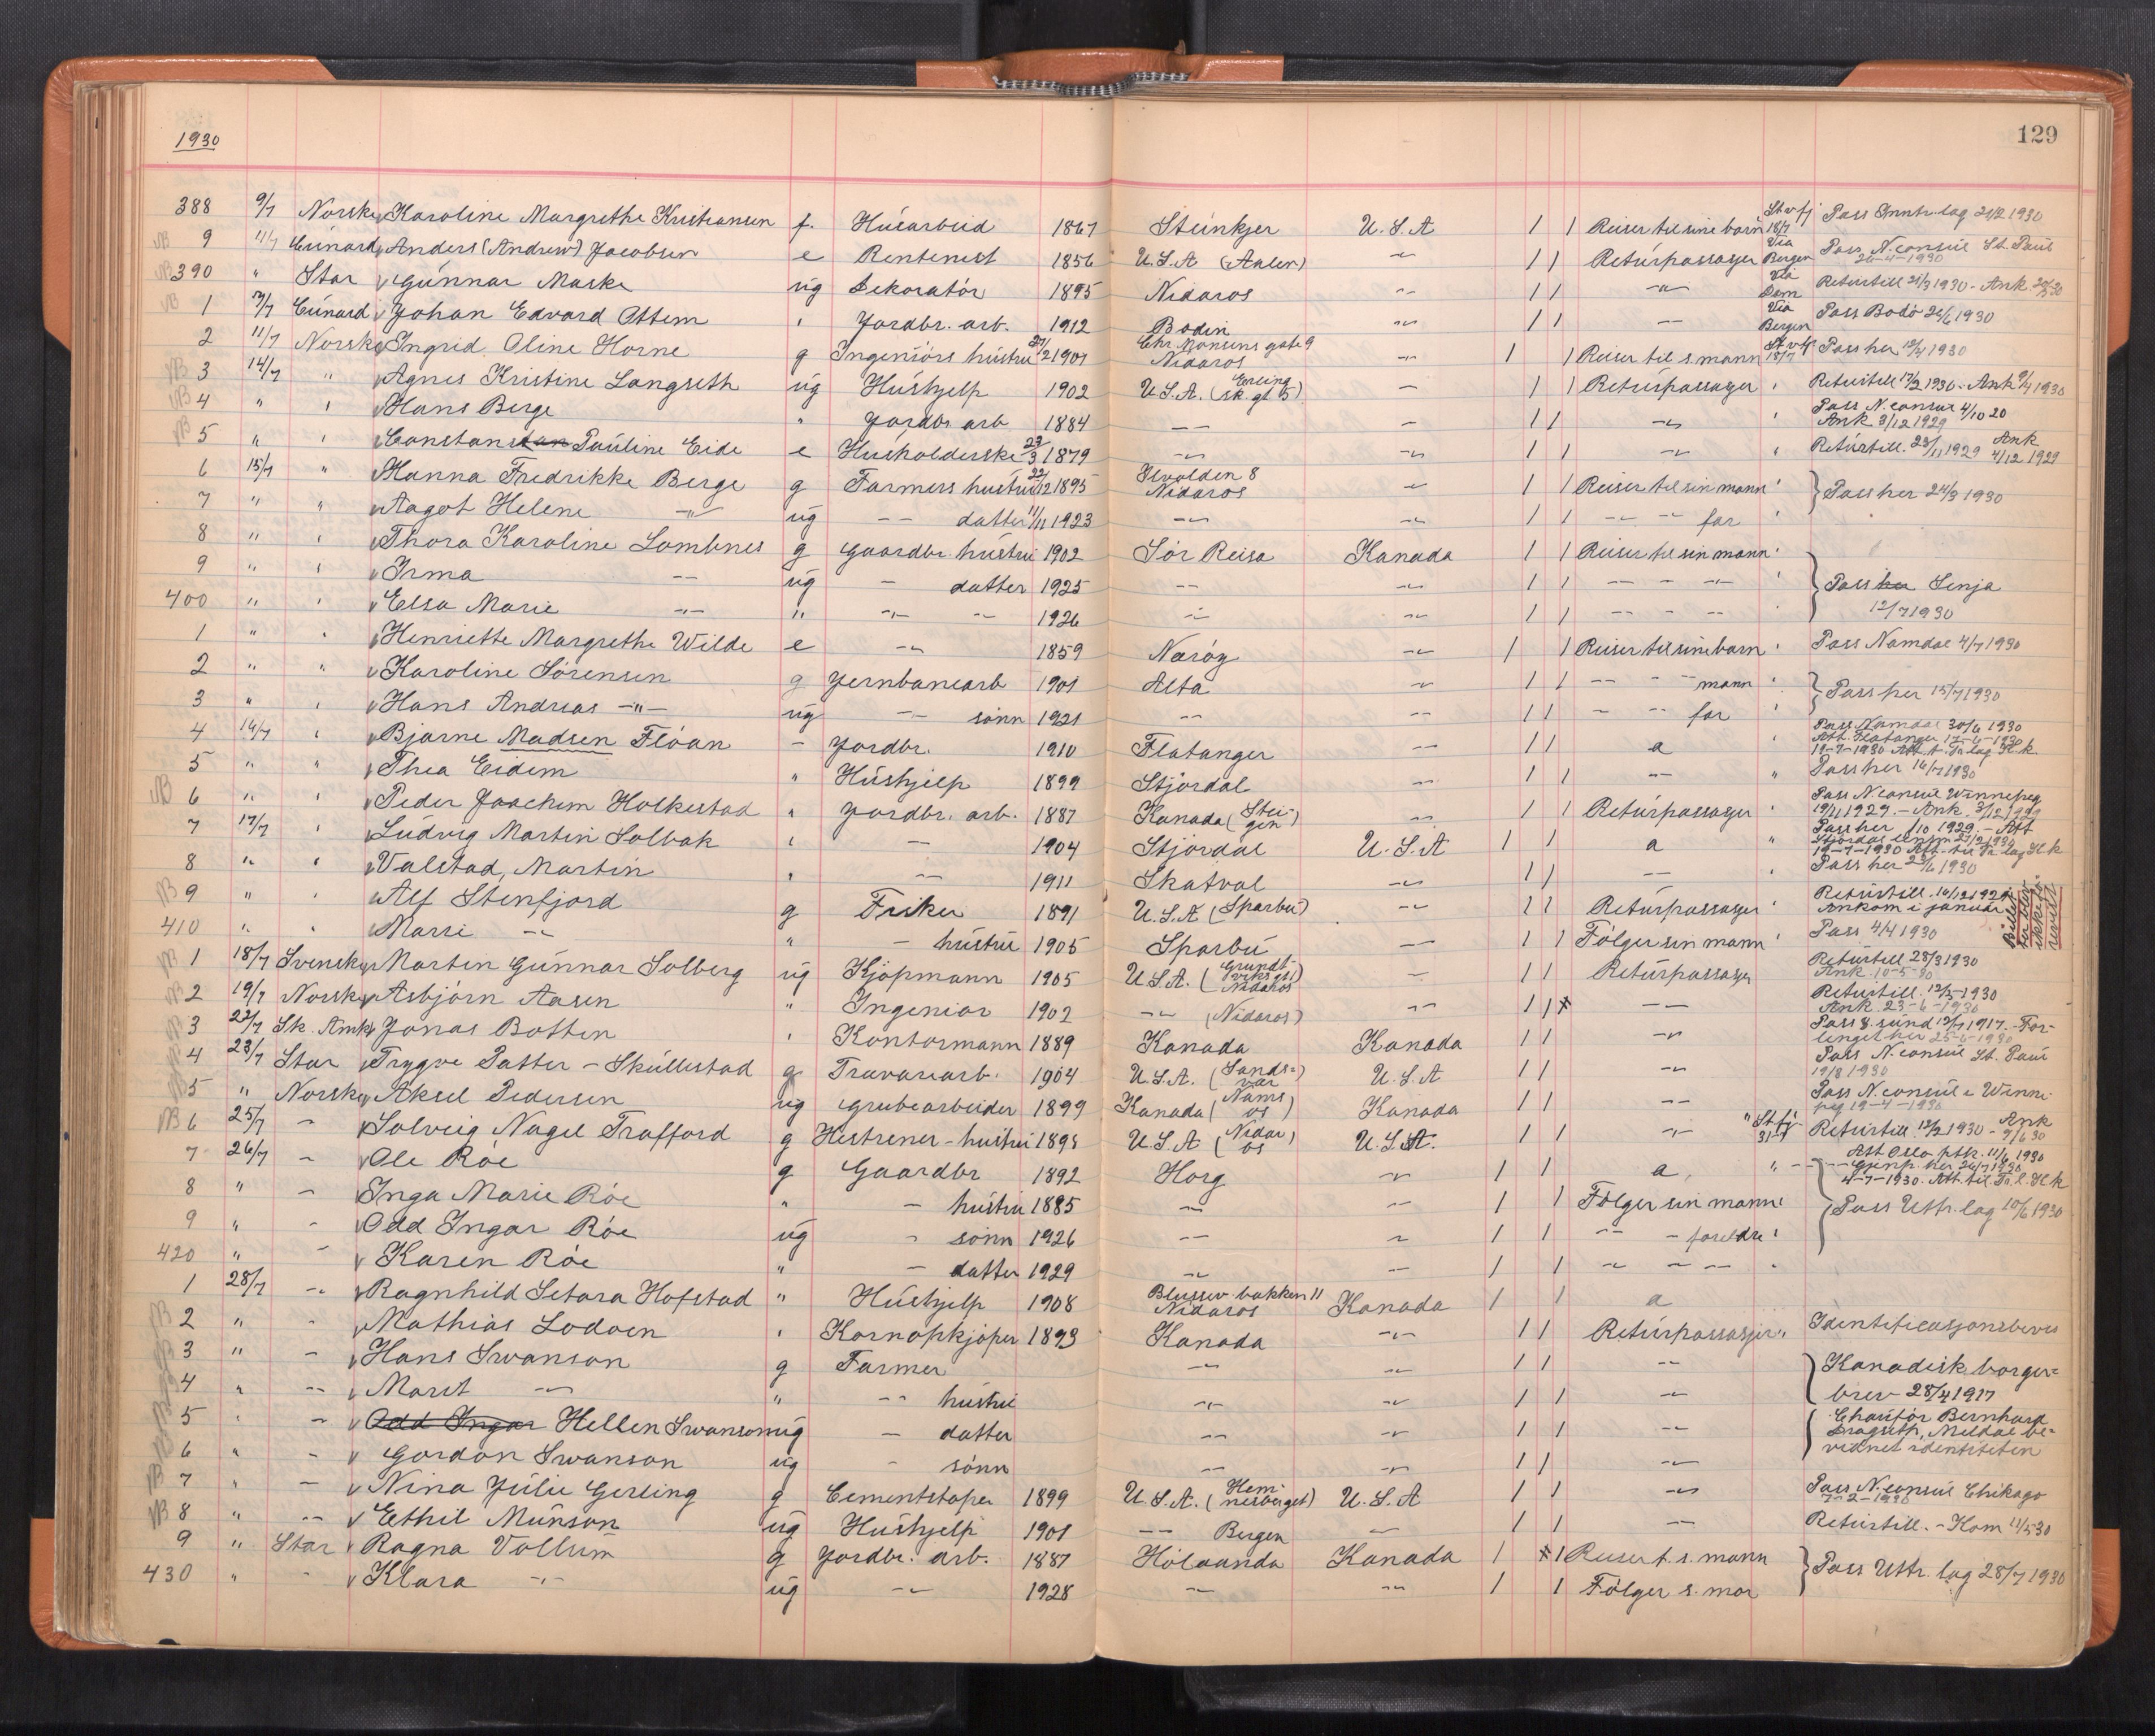 1930
129
388 9/7 Norske Karoline Margrethe Kristiansen f. Húsarbeid 1867 Steinkjer U.S.A 1 1 Reiser til sine barn St.v.fj 18/7 Pass Inntr.lag 21/2 1930
NB 9 11/7 Cunard Anders (Andrew) Jacobsen e Rentenist 1856 U.S.A (Aalen) -"- 1 1 Returpassasjer Via Bergen Pass N. consul St. Paul 26-4-1930
NB 390 " Star Gunnar Maske ug Dekoratør 1895 Nidaros -"- 1 1 -"- Via Dam Returtill 21/3 1930 - Ank
NB 1 7/7 Cunard Johan Edvard Ottem " Jordbr. arb. 1912 Bodin -"- 1 1 -"- Via Bergen Pass Bodø 26/6 1930
2 11/7 Norske Ingrid Oline Horne g Ingeniørs hustru 1901 Chr. Monsens gate 9 Nidaros -"- 1 1 Reiser til s. mann 18/7 Pass her 12/4 1930
NB 3 14/7 " Agnes Kristine Langseth ug Húshjelp 1902 U.S.A. (Erling sk. gt 5) - 1 1 Returpassasjer " Returtill 17/2 1930 - Ank 9/4 1930
NB 4 " " Hans Berge " Jordbr. arb 1884 -"- - 1 1 -"- " Pass N. consul 4/10 20 Ank 3/12 1929
NB 5 " " Constanse Pauline Eide e Husholderske 23/3 1879 -"- -"- 1 1 -"- " Returtill. 23/11 1929 Ank 4/12 1929
6 15/7 " Hanna Fredrikke Berge g Farmers hustru 22/12 1895 Ilevolden 8 Nidaros -"- 1 1 Reiser til sin mann " } Pass her 24/3 1930
7 " " Aagot Helene -"- ug -"- datter 11/11 1923 -"- -"- 1 1 -"- -"- far "
8 " " Thora Karoline Lombnes g Gaardbr. hustru 1902 Sør Reisa Kanada 1 1 Reiser til sin mann "
9 " " Irma -"- ug - datter 1925 -"- -"- 1 1 -"- - -"- " } Pass her Senja
400 " " Elsa Marie -"- " -"- - 1926 -"- -"- 1 1 -"- - -"- " 12/7 1930
1 " " Henriette Margrethe Wilde e -"- 1859 Nærøy -"- 1 1 Reiser til sine barn " Pass Namdal 4/7 1930
2 " " Karoline Sørensen g Jernbanearb 1901 Alta -"- 1 1 -"- - mann " } Pass her 15/7 1930
3 " " Hans Andreas -"- ug -"- sønn 1921 -"- -"- 1 1 - -"- far "
4 16/7 " Bjarne Madsen Fløan - Jordbr. 1910 Flatanger -"- 1 1 a " Pass Namdal 30/6 1930 Att. Flatanger 17-6-1930 19-7-1930 Att. t. Tr. lag Hk.
5 " " Thea Eidem " Húshjelp 1899 Stjørdal -"- 1 1 -"- " Pass her 16/7 1930
NB 6 " " Peder Joachim Holkestad " Jordbr. arb. 1887 Kanada (Steigen) -"- 1 1 Returpassasjer " Pass N. consul Winnepeg 19/11 1929 - Ank. 3/12 1929
7 17/7 " Ludvig Martin Solbak " -"- 1904 Stjørdal U.S.A 1 1 a " Pass her /10 1929 - Att Stjørdal lensm 27/2 1930 19-7-1930 Att. til Tr. lag Hk
8 " " Valstad, Martin " -"- 1911 Skatval -"- 1 1 -"- " Pass her 23/6 1930
NB 9 " " Alf Stenfjord g Fisker 1891 U.S.A (Sparbu) -"- 1 1 Returpassasjer " Returtill. 16/12 1929 Ankom i januar
410 " " Marie -"- " - hustru 1905 Sparbu -"- 1 1 Følger sin mann " Pass 4/4 1930
NB 1 18/7 Svenske Martin Gunnar Solberg ug Kjøpmann 1905 U.S.A. (Nidaros) -"- 1 1 Returpassasjer Returtill 28/3 1930 Ank 10-5-30
NB 2 19/7 Norske Asbjørn Aasen " Ingeniør 1902 -"- (Nidaros) -"- 1 1 -"- Returtill. 12/5 1930 Ank 23-6-1930
NB 3 22/7 Sk. Amk Jonas Botten " Kontormann 1889 Kanada Kanada 1 1 -"- Pass K. sund 12/7 1917. - Forlenget her 25-6-1930
NB 4 23/7 Star Trygve Satter - Skullestad g Travarearb. 1904 U.S.A. (Sandsvær) U.S.A 1 1 -"- Pass N. consul St. Paul 19/3 1930
NB 5 " Norske Aksel Pedersen ug Grubearbeider 1899 Kanada (Namsos) Kanada 1 1 -"- Pass N. consul i Winnipeg 19-4-1930
NB 6 25/7 - Solveig Nagel Trafford g Hestrener - hustru 1898 U.S.A (Nidaros) U.S.A. 1 1 -"- " St. fj 31-7 Returtill. 12/2 1930 - Ank 9/6 30
7 26/7 - Ole Røe g Gaardbr 1892 Horg -"- 1 1 a " Att Oslo ptk. 11/6 1930 Gjenp. her 26/7 1930 4-7-1930. Att. til Tr. l. Hk
8 " - Inga Marie Røe " - hustru 1885 -"- -"- 1 1 Følger sin mann " } Pass Uttr. lag 10/6 1930
9 " - Odd Ingar Røe ug - sønn 1926 -"- -"- 1 1 -"- - foreldre "
420 " - Karen Røe " - datter 1929 -"- -"- 1 1 -"- -"- -"- "
1 28/7 -"- Ragnhild Setara Hofstad " Húshjelp 1908 Blussuv. bakken 11 Nidaros Kanada 1 1 a
NB 2 " - Mathias Lodoen " Kornopkjøper 1893 Kanada -"- 1 1 Returpassasjer " Identificasjonsbevis
NB 3 " - Hans Swanson g Farmer -"- -"- 1 1 -"- } Kanadisk borger=
NB 4 " -"- Marit -"- " -"- hustru -"- -"- 1 1 -"- brev 28/4 1917
NB 5 " -"- Odd Ingar Hellen Swanson ug - datter -"- -"- 1 1 -"- { Chaufør Bernhard
NB 6 " - Gordon Swanson ug - sønn -"- -"- 1 1 -"- Meldal bevidnet identiteten
NB 7 " - Nina Julie Gerling g Cementstøper 1899 U.S.A. (Hemnesberget) U.S.A 1 1 -"- Pass N. consul Chikago 7-2-1930
NB 8 " -"- Ethil Munson ug Húshjelp 1901 -"- Bergen -"- 1 1 -"- Returtill. - Kom 11/5 30
9 " Star Ragna Vollum g Jordbr. arb. 1887 Hølaanda Kanada 1 1 Reiser t. s. mann } Pass Uttr. lag 28/7 1930
430 " - Klara -"- ug -"- 1928 -"- -"- 1 1 Følger s. mor